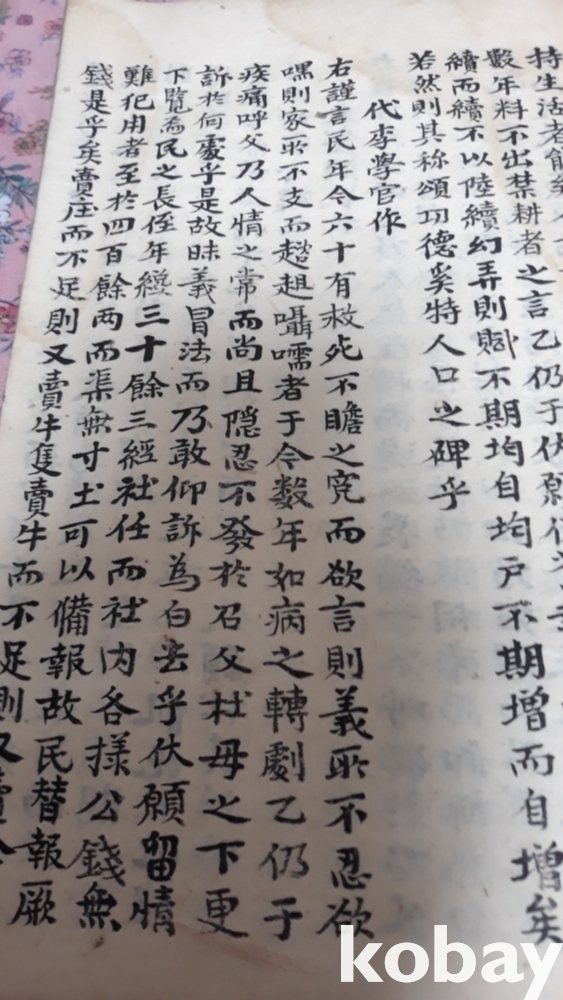 持生活者
數年料不出禁耕者之言乙仍于伏願
續而續不以陸續幻弄則賦不期均自均戶不期增而自增矣
若然則其称頌功德奚特人口之碑乎
代李學官作
右謹言民年今六十有救死不贍之寃而欲言則義所不忍欲
嘿則家所不支而趑趄囁嚅者于今数年如病之轉劇乙仍于
疾痛呼父乃人情之常而尚且隠忍不發於召父杜母之下更
訴於何處乎是故昧義冒法而乃敢仰訴為白去乎伏願留情
下覽焉民之長侄年纔三十餘三經社任而社内各樣公錢無
難犯用者至於四百餘两而渠無寸土可以備報故民替報厥
錢是乎矣賣庄而不足則又賣牛隻賣牛而不足則又賣
kobay